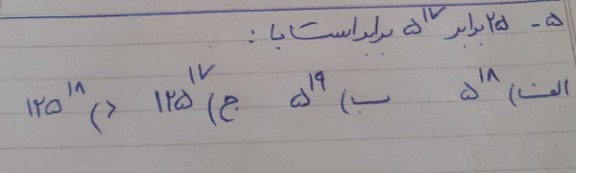 ۵- ۲۵ برابر ۵^۱۷ برابر است با:
الف) ۵^۱۸ ب) ۵^۱۹ ج) ۱۲۵^۱۷ د) ۱۲۵^۱۸